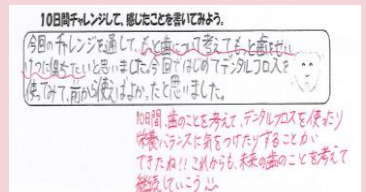 10日間チャレンジして、感じたことを書いてみよう。
今回のチャレンジを通して、もっと歯について考えてもっと歯をせい
けつに保ちたいと思いました。今回ではじめてデンタルフロスを
使ってみて、前から使えばよかったと思いました。
10日間、歯のことを考えて、デンタルフロスを使ったり
栄養バランスに気をつけたりすることが
できたね!!これからも、未来の歯のことを考えて
継続していこう